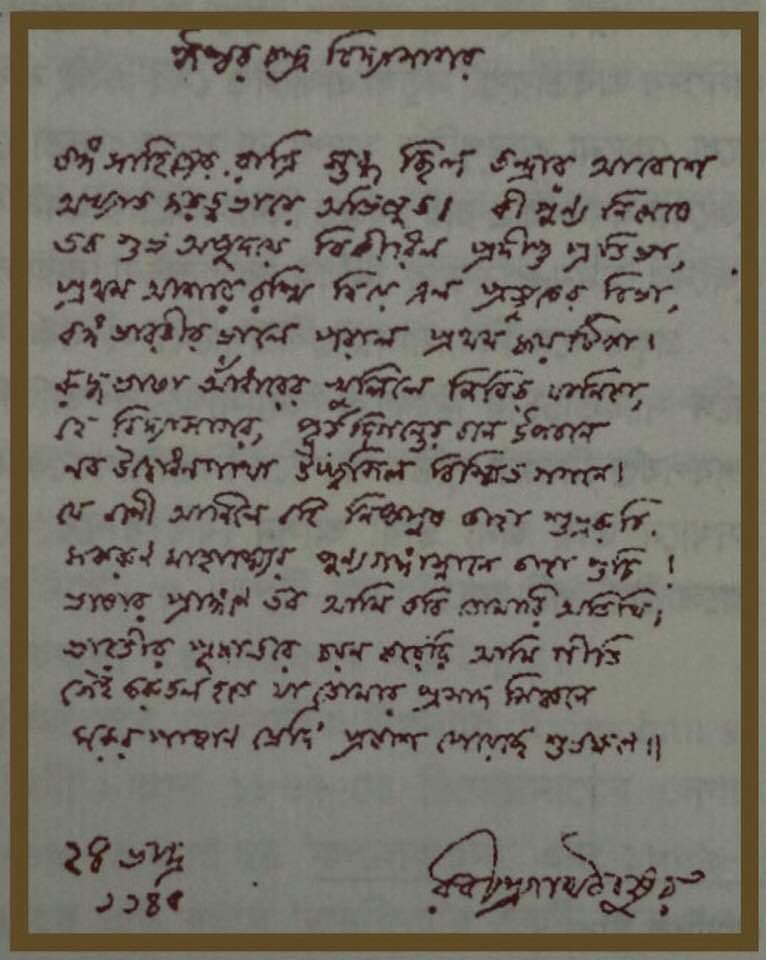 ঈশ্বরচন্দ্র বিদ্যাসাগর
বঙ্গ সাহিত্যের রাত্রি স্তব্ধ ছিল তন্দ্রার আবেশে
অখ্যাত জড়ত্বভারে অভিভূত। কী পুণ্য নিমেষে
তব শুভ অভ্যুদয়ে বিকীরিল প্রদীপ্ত প্রতিভা,
প্রথম আশার রশ্মি নিয়ে এল প্রত্যূষের বিভা,
বঙ্গ ভারতীর ভালে পরাল প্রথম জয়টিকা।
রুদ্ধভাষা আঁধারের খুলিলে নিবিড় যবনিকা,
হে বিদ্যাসাগর, পূর্ব দিগন্তের বনে উপবনে
নব উদ্বোধনগাথা উচ্ছ্বসিল বিস্মিত গগনে।
যে বাণী আনিলে বহি নিষ্কলুষ তাহা শুভ্ররুচি,
সকরুণ মাহাত্ম্যের পুণ্য গঙ্গাস্নানে তাহা শুচি।
ভাষার প্রাঙ্গণে তব আমি কবি তোমারি অতিথি;
ভারতীর পূজাতরে চয়ন করেছি আমি গীতি
সেই তরুতল হতে যা তোমার প্রসাদ সিঞ্চনে
মরুর পাষাণ ভেদি প্রকাশ পেয়েছে শুভক্ষণে॥
২৪ ভাদ্র
১৩৪৫
রবীন্দ্রনাথ ঠাকুর